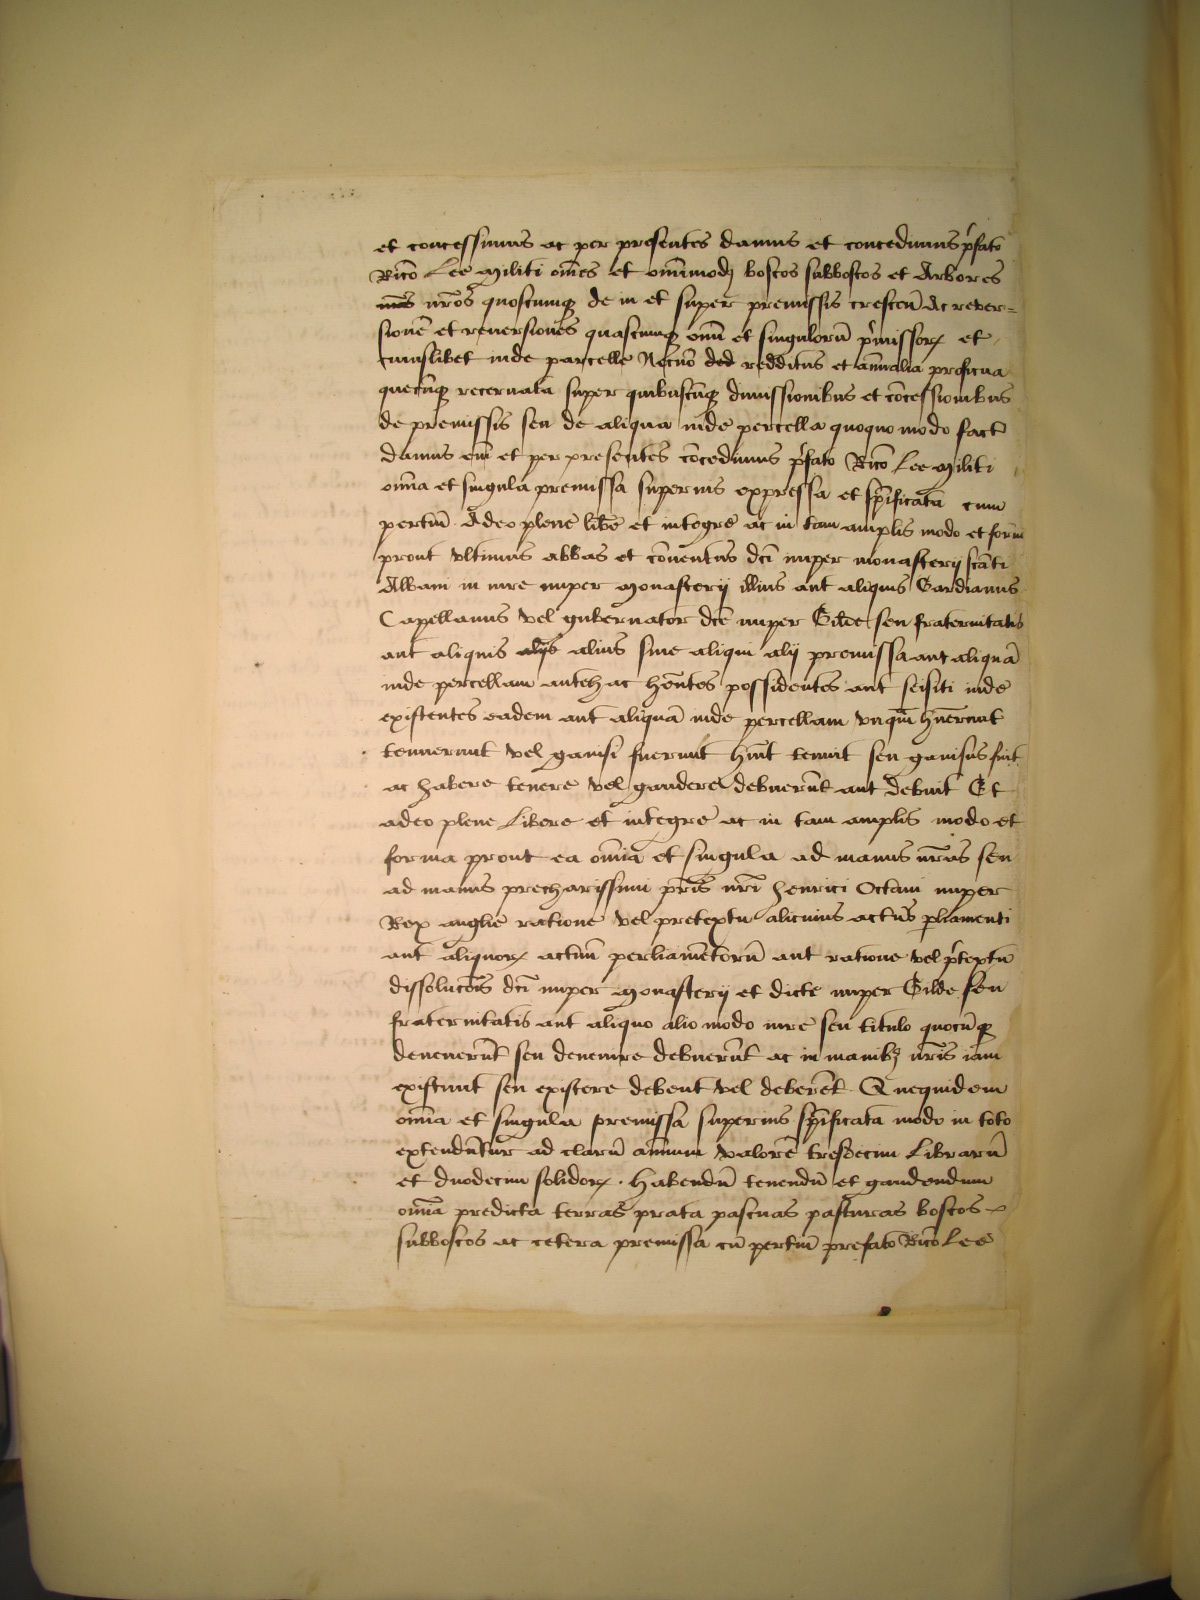 et concessimus ac per presentes damus et concedimus p̉fato
Ricõ Lee Militi om̃es et om̃imodꝫ boscos subboscos et Arbores
nr̃os quoscumqꝫ de in et super premissis crescen̄ Ac rever=
sionẽ et reuersiones quascumqꝫ om̃i et singulorũ p̉missorꝝ et
cuiuslibet inde parcelle Necnõ ded redditus et annualia proficua
quecũqꝫ reseruata super quibuscũqꝫ dimissionibus et cõcessionibus
de premissis seu de aliqua inde percella quoquo modo fact̃
damus em̃ et per presentes cõcedimus p̉fato Ricõ Lee Militi
om̃ia et singula premissa superius expressa et sp̃ificata cum
pertiñ Adeo plene lib̃e et integre ac in tam amplis modo et form̃
prout vltimus abbas et cõuentus dc̃i nuper monasterij sc̃ti
Albani in iure nuper Monasterij illius aut aliquis Gardianus
Capellanus vel gubernator dc̃e nuper Gilde seu fraternitatis
aut aliquis alijs alius siue aliqui alij premissa aut aliquã
inde percellam antehac hẽntes possidentes aut seisiti inde
existentes eadem aut aliquã inde percellam vnqm̃ hũerunt
tenuerunt vel gauisi fuerunt hũit tenuit seu gauisus fuit
ac habere tenere vel gaudere debuerũt aut debuit Et
adeo plene Libere et integre ac in tam amplis modo et
forma prout ea om̃ia et singula ad manus nr̃as seu
ad manus precharissimi pr̃is nr̃i henrici Octaui nuper
Rex anglie ratione vel pretextu alicuius actus ꝑliamenti
aut aliquorꝝ actuũ perliamẽtorũ aut ratione vel p̉textu
dissolucõis dc̃i nuper Monasterij et dicte nuper Gilde seu
fraternitatis aut aliquo alio modo iure seu titulo quocũqꝫ
deuenerũt seu deuenire debuerũt ac in manibꝫ nr̃is iam
existunt seu existere debent vel deberẽt Quequidem
om̃ia et singula premissa superius sp̃ificata modo in toto
extendũtur ad clarũ annuum valorẽ tresdecim Librarũ
et duodecim solidorꝝ. Habendũ tenendũ et gaudendum
om̃ia predicta terras prata pascuas pasturas boscos
subboscos ac cetera premissa cũ pertiñ prefato Ricõ Lee